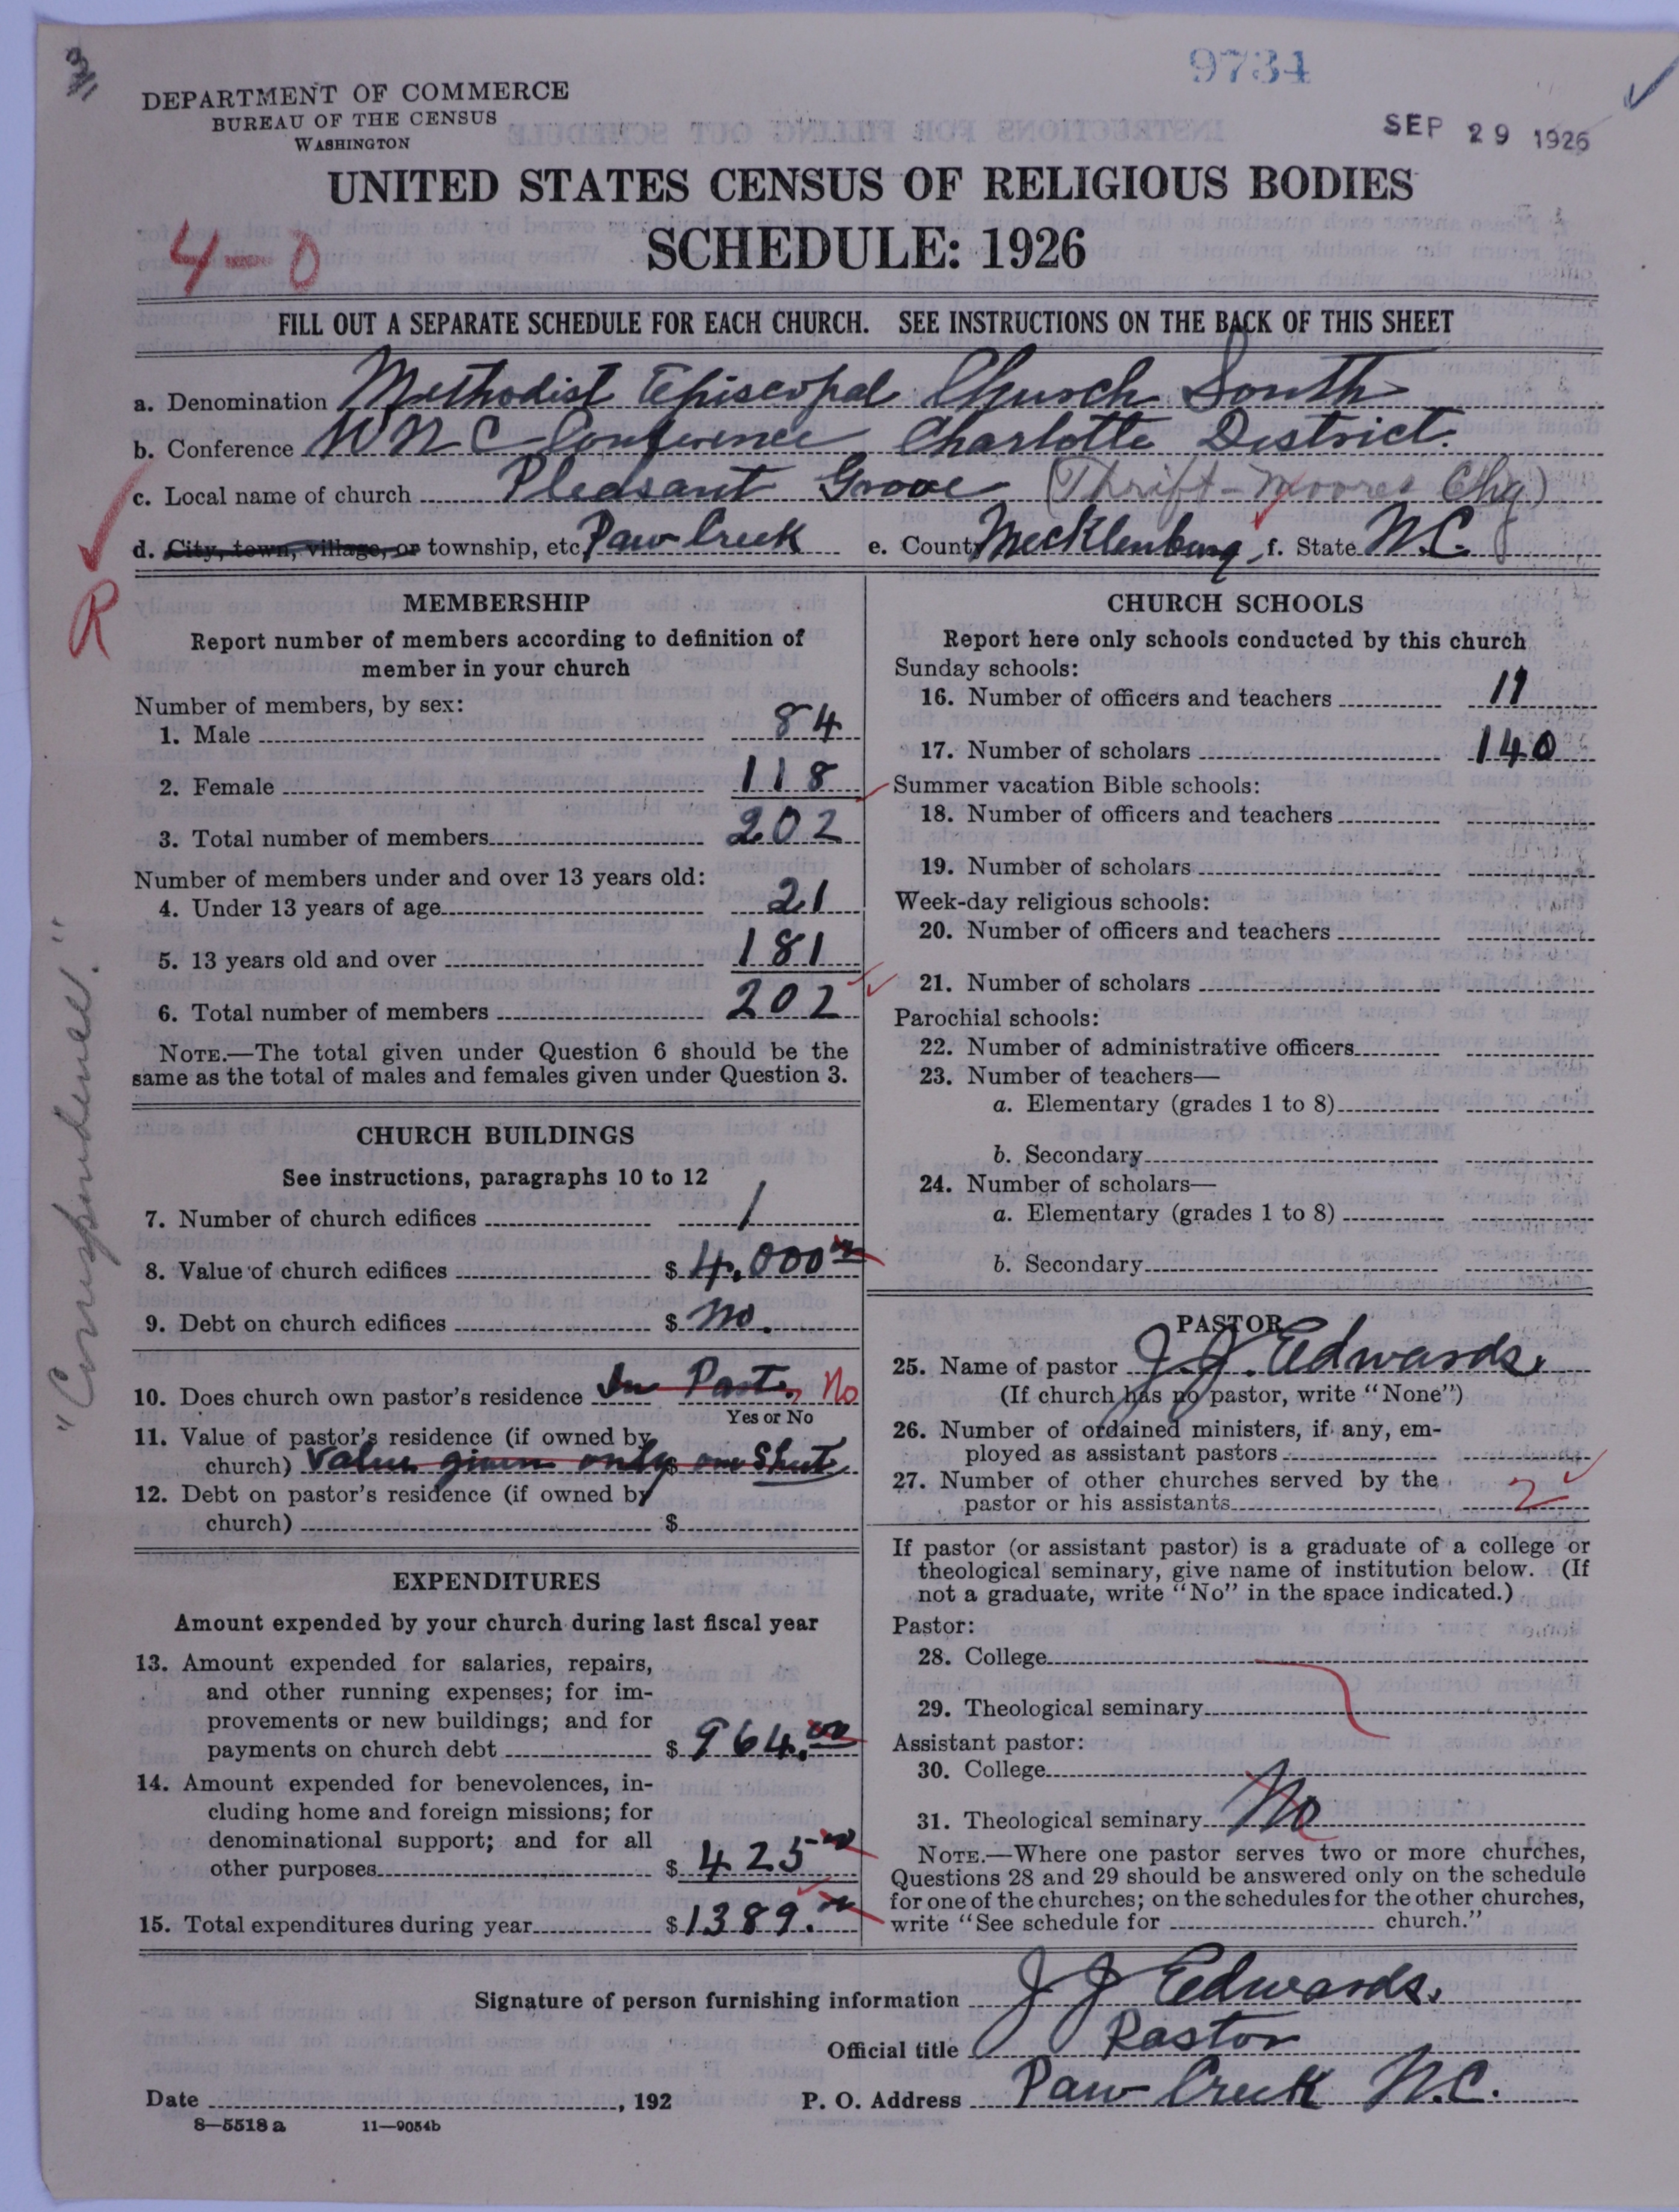 9734
DEPARTMENT OF COMMERCE
BUREAU OF THE CENSUS
WASHINGTON
SEP 29 1926
UNITED STATES CENSUS OF RELIGIOUS BODIES
4-0
SCHEDULE: 1926
FILL OUT A SEPARATE SCHEDULE FOR EACH CHURCH. SEE INSTRUCTIONS ON THE BACK OF THIS SHEET
a. Denomination Methodist Episcopal Church South
b. Conference WNC Conference Charlotte District.
c. Local name of church Pleasant Grove (Thrift-Moores Chg)
d. City, town, village, or township, etc Paw Creek e. County Mecklenburg, f. State N.C.
R
"Correspondence."
MEMBERSHIP
Report number of members according to definition of
member in your church
Number of members, by sex:
1. Male 84
2. Female 118
3. Total number of members 202
Number of members under and over 13 years old:
4. Under 13 years of age 21
5. 13 years old and over 181
6. Total number of members 202
NOTE.—The total given under Question 6 should be the
same as the total of males and females given under Question 3.
CHURCH BUILDINGS
See instructions, paragraphs 10 to 12
7. Number of church edifices 1
8. Value of church edifices $ 4,000 00
9. Debt on church edifices $ no.
10. Does church own pastor's residence In Part. No
Yes or No
11. Value of pastor's residence (if owned by
church) Value given only $ one Sheet
12. Debt on pastor's residence (if owned by
church) $
EXPENDITURES
Amount expended by your church during last fiscal year
13. Amount expended for salaries, repairs,
and other running expenses; for im-
provements or new buildings; and for
payments on church debt $ 964.00
14. Amount expended for benevolences, in-
cluding home and foreign missions; for
denominational support; and for all
other purposes $ 425 00
15. Total expenditures during year $ 1389.00
CHURCH SCHOOLS
Report here only schools conducted by this church
Sunday schools:
16. Number of officers and teachers 11
17. Number of scholars 140
Summer vacation Bible schools:
18. Number of officers and teachers
19. Number of scholars
Week-day religious schools:
20. Number of officers and teachers
21. Number of scholars
Parochial schools:
22. Number of administrative officers
23. Number of teachers—
a. Elementary (grades 1 to 8)
b. Secondary
24. Number of scholars—
a. Elementary (grades 1 to 8)
b. Secondary
PASTOR
25. Name of pastor J. J. Edwards.
(If church has no pastor, write "None")
26. Number of ordained ministers, if any, em-
ployed as assistant pastors
27. Number of other churches served by the
pastor or his assistants 2
If pastor (or assistant pastor) is a graduate of a college or
theological seminary, give name of institution below. (If
not a graduate, write "No" in the space indicated.)
Pastor:
28. College
29. Theological seminary
Assistant pastor:
30. College
31. Theological seminary No
NOTE.—Where one pastor serves two or more churches,
Questions 28 and 29 should be answered only on the schedule
for one of the churches; on the schedules for the other churches,
write "See schedule for church."
Signature of person furnishing information J J Edwards.
Official title Pastor
Date , 192 P. O. Address Paw Creek N.C.
8—5518 a 11—9054b